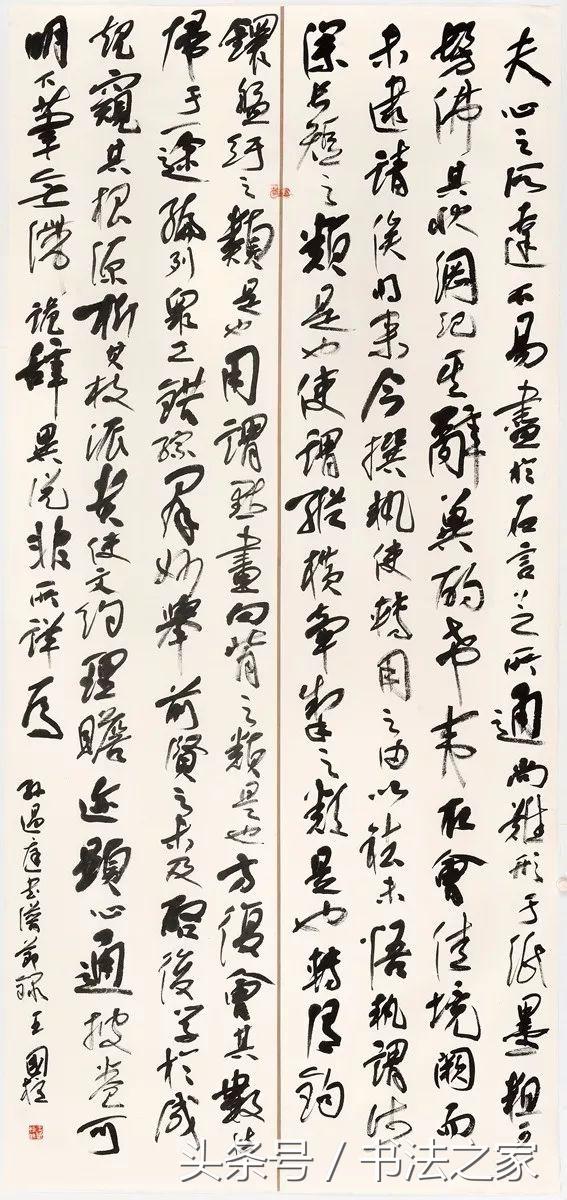 夫心之所達不易盡於名言言之所通尚難形于紙墨粗可
髣佛其狀綱紀其辭冀酌希夷取會佳境闕而
未逮請俟將來今撰執使轉用之由以祛未悟執謂深
淺長短之類是也使謂縱橫牽掣之類是也轉謂鈎
鐶盤紆之類是也用謂點畫向背之類是也方復會其數法
歸于一途編列眾工錯綜羣妙舉前賢之未及啓後學於成
規窺其根源析其枝派貴使文約理贍迹顯心通披卷可
明下筆無滯詭辭異說非所詳焉
孫過庭書譜節錄 王國
头条号/书法之家